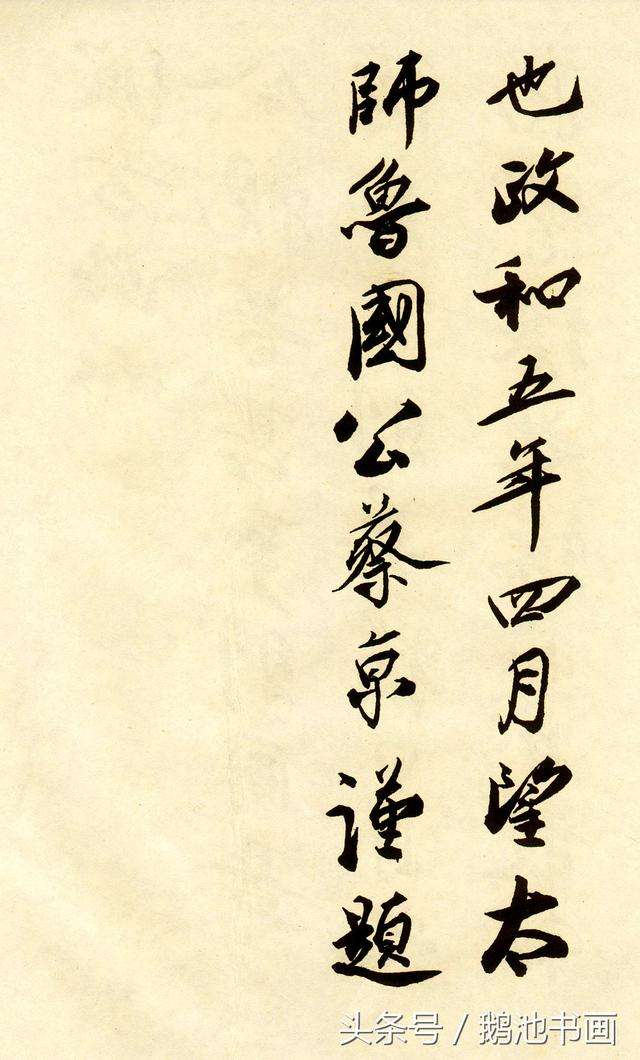 也政和五年四月望太
師魯國公蔡京謹題
头条号 / 鹅池书画